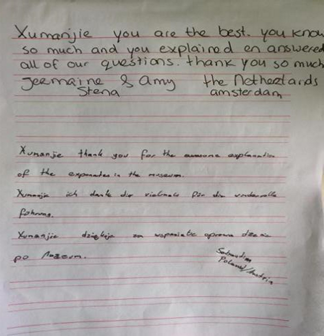 Xumanjie you are the best. you know
so much and you explained en answered
all of our questions. thank you so much
Jermaine & Amy the Netherlands
Stena amsterdam
Xumanjie thank you for the awesome explanation
of the exponates in the museum.
Xumanjie ich danke dir vielmals für die wundervolle
Führung.
Xumanjie dziękuje za wspaniałe
po Muzeum.
Sebastian
Poland/Austria